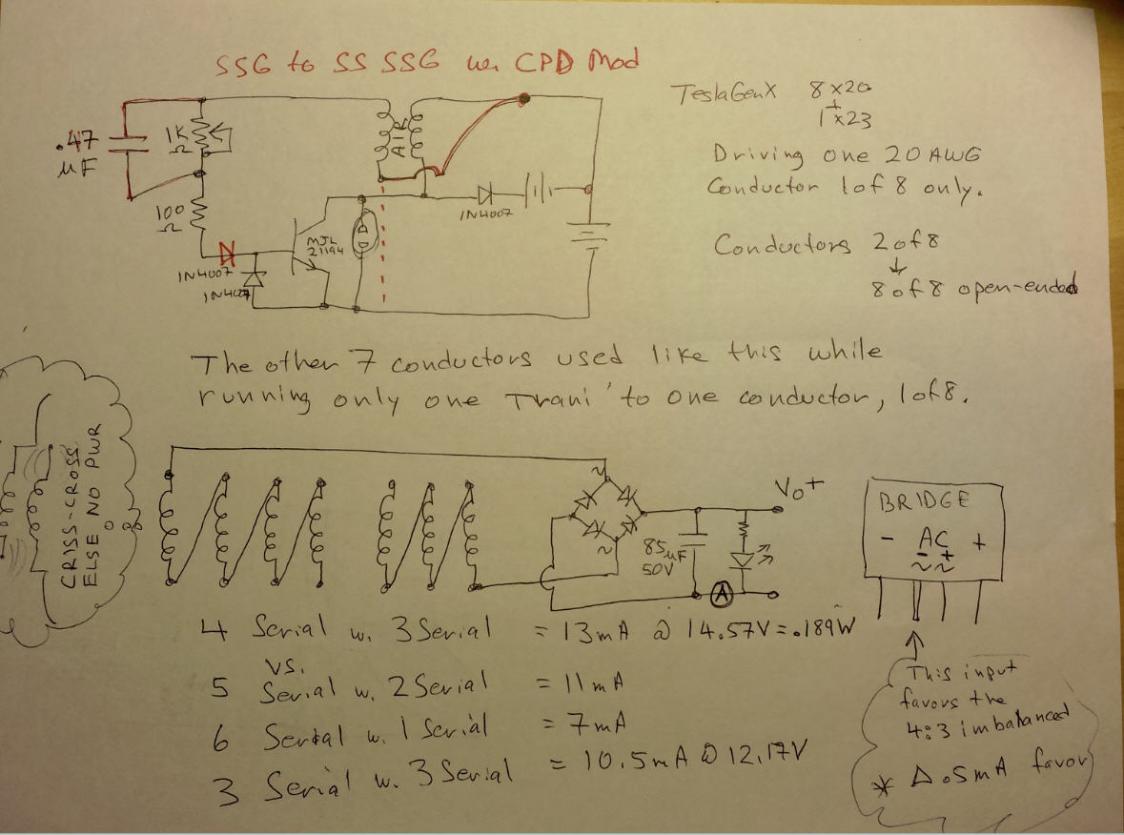 SSG to SS SSG w. CPD Mod
TeslaGenX 8 x 20
+
1 x 23
Driving one 20 AWG
Conductor 1 of 8 only.
Conductors 2 of 8
↓
8 of 8 open-ended
.47
µF
1K
Ω
100
Ω
AIR
1N4007
1N4007
MJL
21194
1N4007
The other 7 conductors used like this while
running only one Trani' to one conductor, 1 of 8.
CRISS-CROSS
ELSE NO PWR
~
~
85µF
50V
A
Vo+
BRIDGE
- AC +
- +
~ ~
4 Serial w. 3 Serial = 13mA @ 14.57V = .189W
vs.
5 Serial w. 2 Serial = 11mA
6 Serial w. 1 Serial = 7mA
3 Serial w. 3 Serial = 10.5mA @ 12.17V
This input
favors the
4:3 imbalanced
* Δ .5mA favor